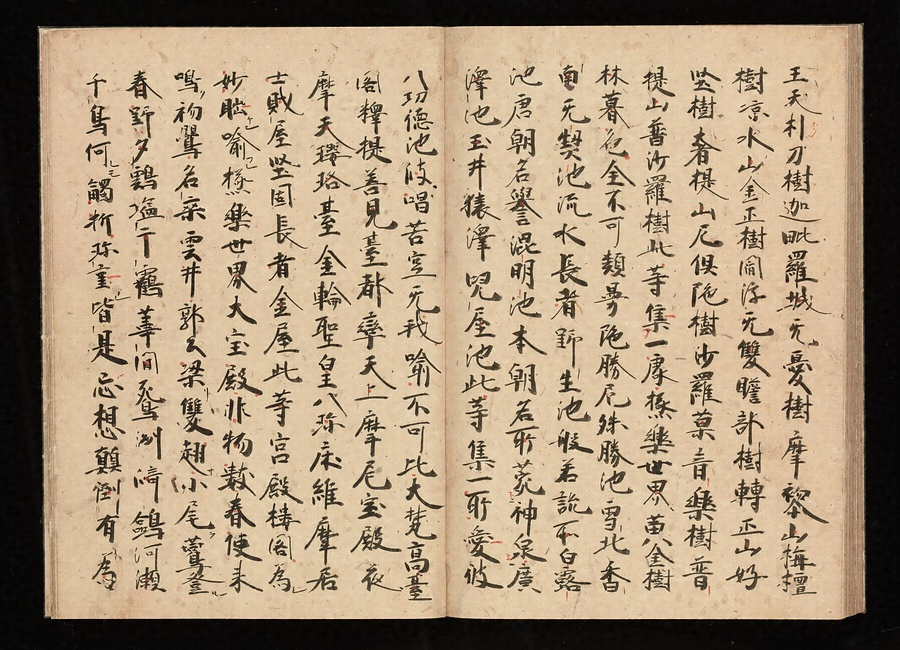 王天朴刀樹迦毗羅城无憂樹摩黎山栴檀
樹凉水山金正樹閻浮无雙瞻蔔樹轉正山好
堅樹奢提山尼俱陁樹沙羅菓音樂樹晋
提山普沙羅樹此等集一處極樂世界黄金樹
林暮色全不可類曼陁勝尼殊勝池雪北香
南无熱池流水長者野生池般若說所白露
池唐朝名譽混明池本朝名所苑神泉廣
澤池玉井猿澤児屋池此等集一所愛彼
八功德池波唱苦空无我喻不可比大梵高臺
閣釋提善見臺都率天上摩尼宝殿夜
摩天瓔珞臺金輪聖皇八珎床維摩居
士賎屋堅固長者金屋此等宮殿樓閣為
妙拙喻極樂世界大宝殿非物數春使来
鳴初鸎名栄雲井郭公梁雙翅小尾
春野夕鷄塩干鶴葦間鴛渕﨑鷀河瀬
千鳥何觸折珎宝皆是忘想顛倒有為